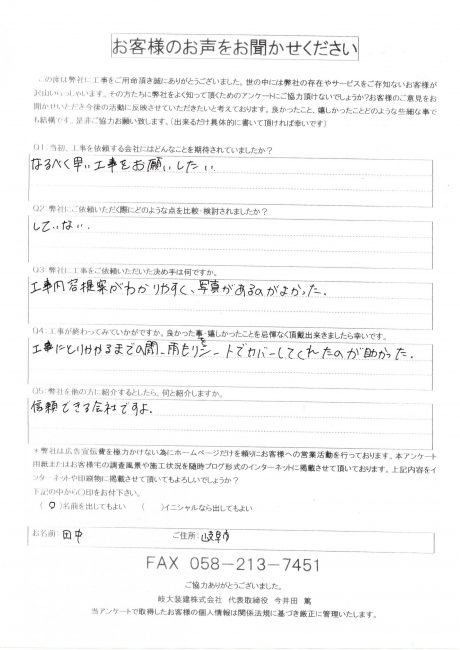 お客様のお声をお聞かせください
この度は弊社に工事をご用命頂き誠にありがとうございました。世の中には弊社の存在やサービスをご存知ないお客様が
沢山いらっしゃいます。その方たちに弊社をよく知って頂くためのアンケートにご協力頂けないでしょうか?お客様のご意見をお
聞かせいただき今後の活動に反映させていただきたいと考えております。良かったこと、嬉しかったことどのような些細な事で
も結構です。是非ご協力お願い致します。(出来るだけ具体的に書いて頂ければ幸いです)
Q1:当初、工事を依頼する会社にはどんなことを期待されていましたか?
なるべく早い工事をお願いしたい。
Q2:弊社にご依頼いただく際にどのような点を比較・検討されましたか?
していない。
Q3:弊社に工事をご依頼いただいた決め手は何ですか。
工事内容提案がわかりやすく、写真があるのがよかった。
Q4:工事が終わってみていかがですか。良かった事・嬉しかったことを忌憚なく頂戴出来きましたら幸いです。
工事にとりかかるまでの間、雨もりをシートでカバーしてくれたのが助かった。
Q5:弊社を他の方に紹介するとしたら、何と紹介しますか。
信頼できる会社ですよ。
*弊社は広告宣伝費を極力かけない為にホームページだけを頼りにお客様への営業活動を行っております。本アンケート
用紙またはお客様宅の調査風景や施工状況を随時ブログ形式のインターネットに掲載させて頂いております。上記内容をイ
ンターネットや印刷物に掲載させて頂いてもよろしいでしょうか?
下記の中から〇印をお付下さい。
(○)名前を出してもよい ( )イニシャルなら出してもよい
お名前: 田中 ご住所: 岐阜市
FAX 058-213-7451
ご協力ありがとうございました。
岐大装建株式会社 代表取締役 今井田 篤
当アンケートで取得したお客様の個人情報は関係法規に基づき厳正に管理いたします。